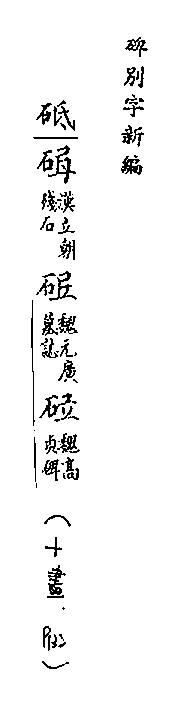 碑別字新編
砥 漢立朝殘石 魏元廣墓誌 魏高貞碑 (十畫.)